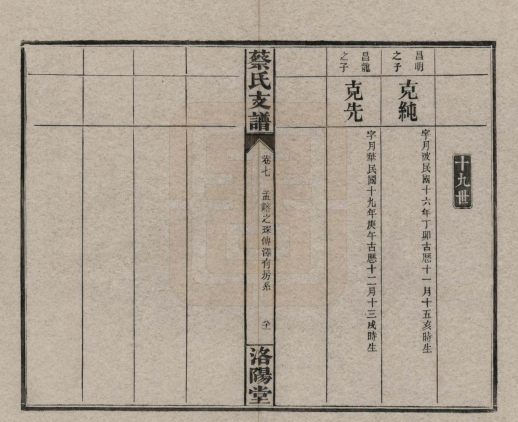 十九世
昌明之子
克純
字月波民國十六年丁卯古曆十一月十五亥時生
昌龍之子
克先
字月華民國十九年庚午古曆十二月十三戌時生
蔡氏支譜
卷七
之琛傳澤有房系
洛陽堂